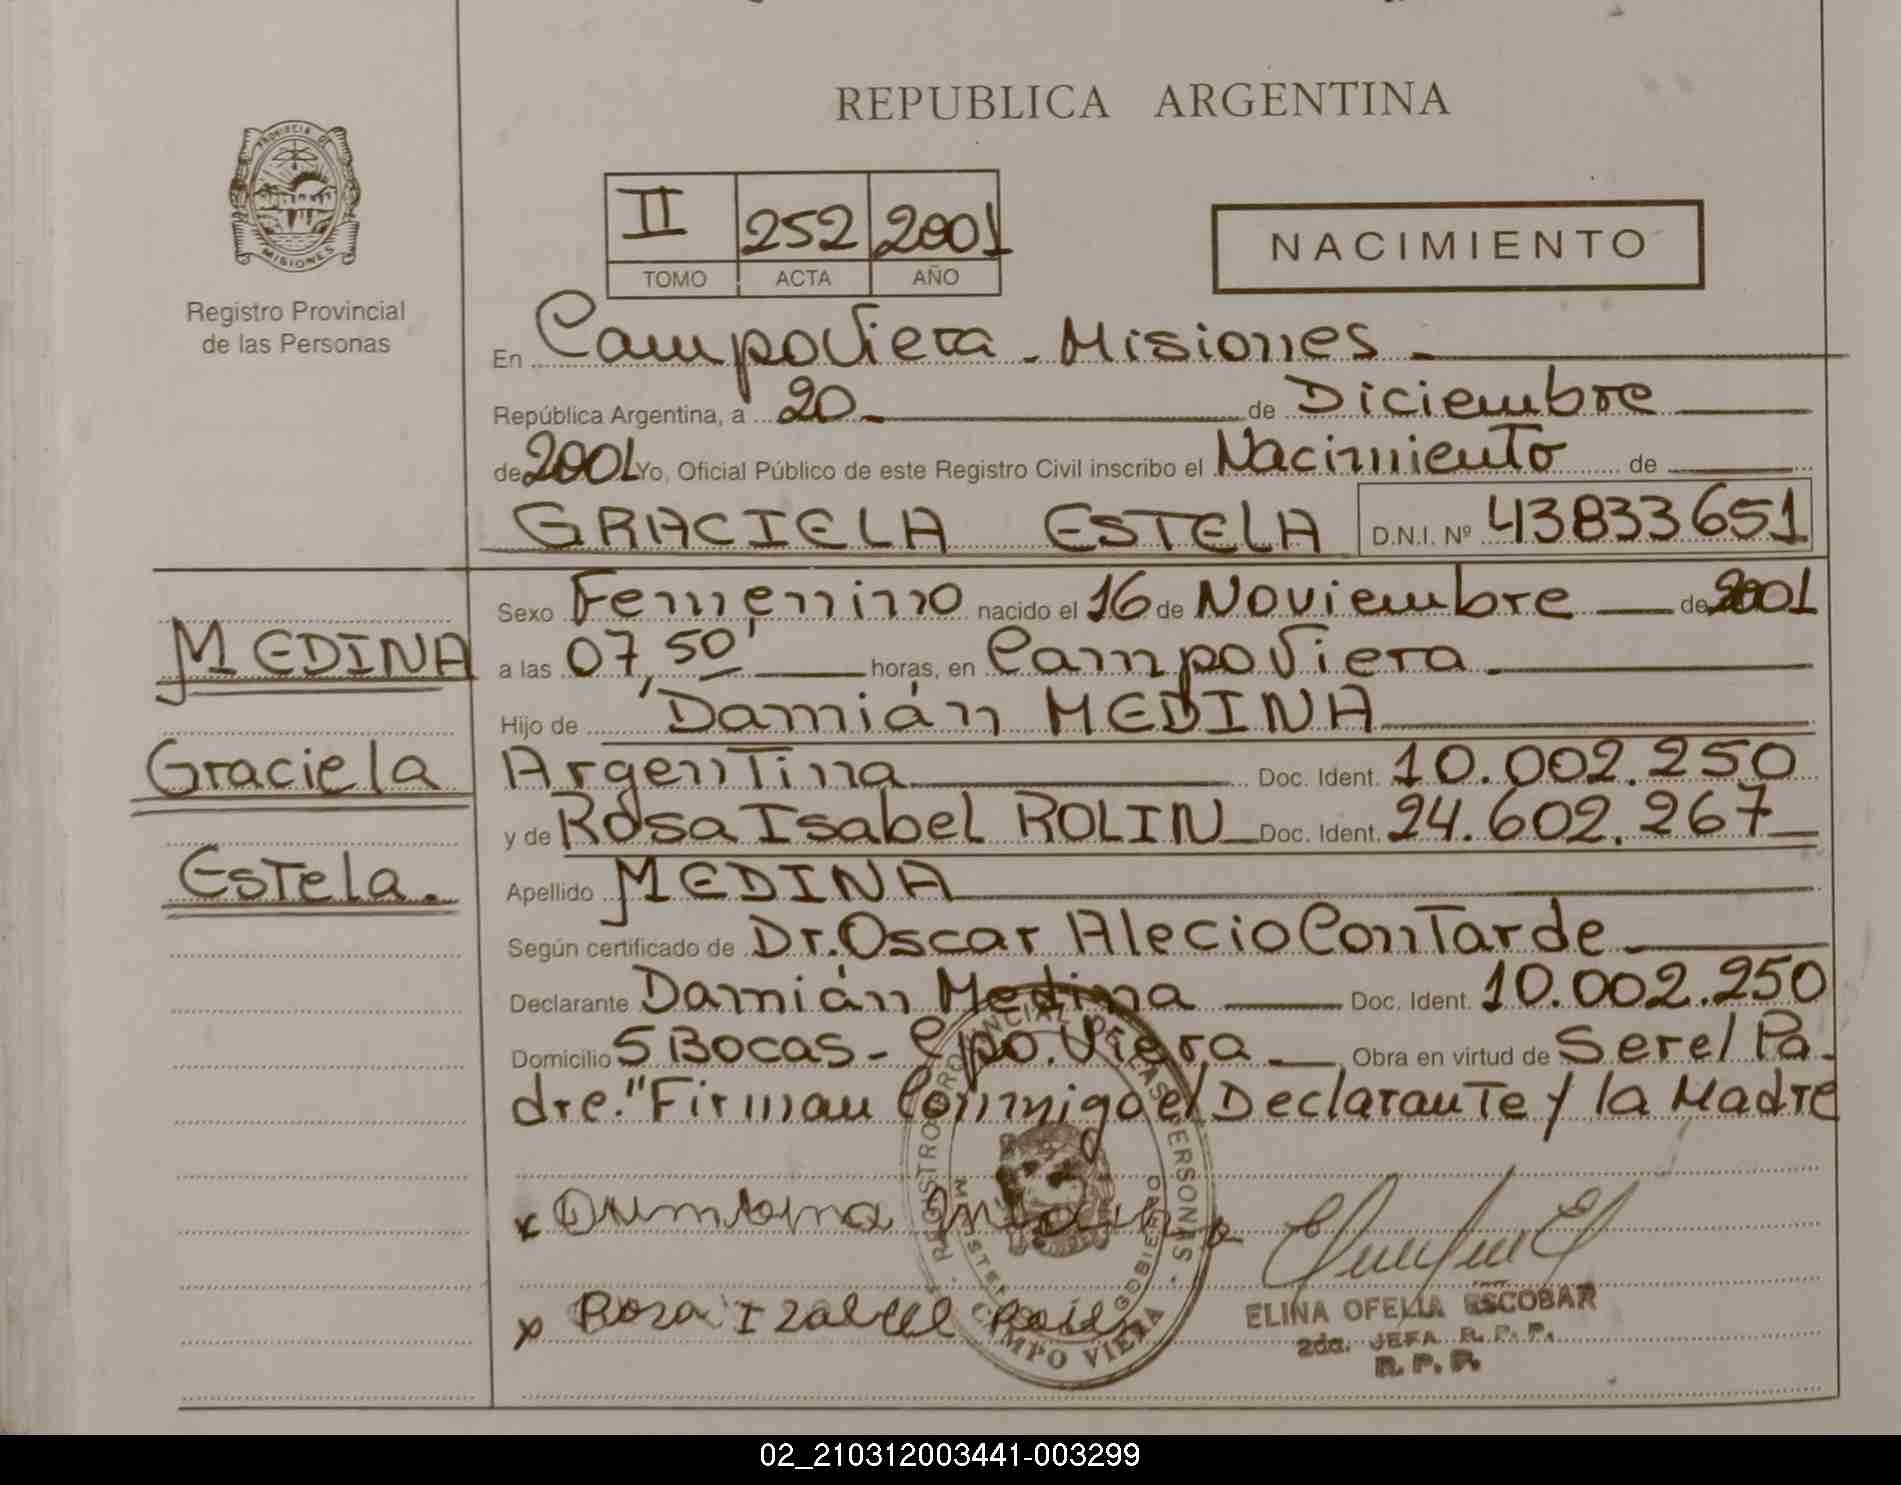 REPUBLICA ARGENTINA
PROVINCIA DE
MISIONES
Registro Provincial
de las Personas
II 252 2001
TOMO ACTA AÑO
NACIMIENTO
En Campo Viera - Misiones -
República Argentina, a 20 de Diciembre
de 2001 Yo, Oficial Público de este Registro Civil inscribo el Nacimiento de
GRACIELA ESTELA D.N.I. Nº 43833651
MEDINA
Graciela
Estela.
Sexo Femenino nacido el 16 de Noviembre de 2001
a las 07,50' horas, en Campo Viera
Hijo de Damián MEDINA
Argentina Doc. Ident. 10.002.250
y de Rosa Isabel ROLIN Doc. Ident. 24.602.267
Apellido MEDINA
Según certificado de Dr. Oscar Alecio Contarde
Declarante Damián Medina Doc. Ident. 10.002.250
Domicilio 5 Bocas - Cpo. Viera Obra en virtud de Ser el Pa-
dre." Firman Conmigo el Declarante y la Madre
REGISTRO PROVINCIAL DE LAS PERSONAS
CAMPO VIERA
x
x Rosa Izabel
ELINA OFELIA ESCOBAR
2da. JEFA R.P.P.
R.P.P.
02_210312003441-003299